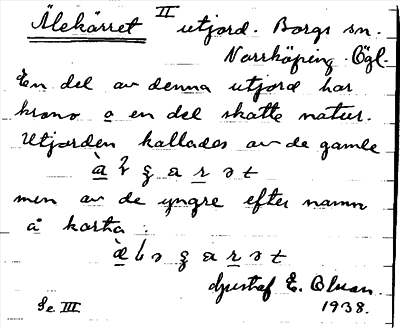 Älekärret II utjord. Borgs sn.
Norrköping. Ögl.
En del av denna utjord har
krono o en del skatte natur.
Utjorden kallades av de gamle
men av de yngre efter namn
å karta :
Gustaf E. Olsson.
Se III
1938.